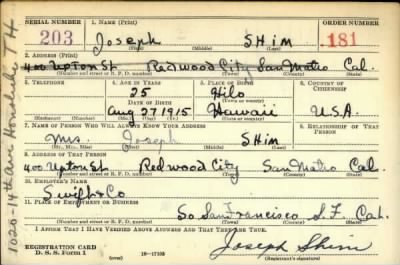 SERIAL NUMBER 1. NAME (Print) ORDER NUMBER
203 Joseph SHIM 181
(First) (Middle) (Last)
2. ADDRESS (Print)
400 Upton St Redwood City San Matro Cal.
(Number and street or R. F. D. number) (Town) (County) (State)
3. TELEPHONE 4. AGE IN YEARS 5. PLACE OF BIRTH 6. COUNTRY OF CITIZENSHIP
25 Hilo
DATE OF BIRTH (Town or county)
Aug 27 1915 Hawaii U.S.A.
(Exchange) (Number) (Mo.) (Day) (Yr.) (State or country)
7. NAME OF PERSON WHO WILL ALWAYS KNOW YOUR ADDRESS 8. RELATIONSHIP OF THAT PERSON
Mrs. Joseph SHIM
(Mr., Mrs., Miss) (First) (Middle) (Last)
9. ADDRESS OF THAT PERSON
400 Upton St Redwood City San Matro Cal.
(Number and street or R. F. D. number) (Town) (County) (State)
10. EMPLOYER'S NAME
Swift & Co
11. PLACE OF EMPLOYMENT OR BUSINESS
So San Francisco S.F. Cal.
(Number and street or R. F. D. number) (Town) (County) (State)
I AFFIRM THAT I HAVE VERIFIED ABOVE ANSWERS AND THAT THEY ARE TRUE.
REGISTRATION CARD
D. S. S. Form 1 (over) 16—17105 Joseph Shim
(Registrant's signature)
1026-14th Ave Honolulu T.H.